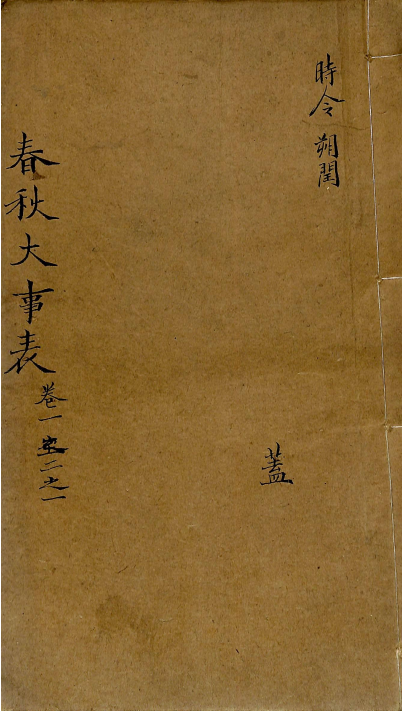 時令 朔閏
蓋
春秋大事表 卷一至二之一